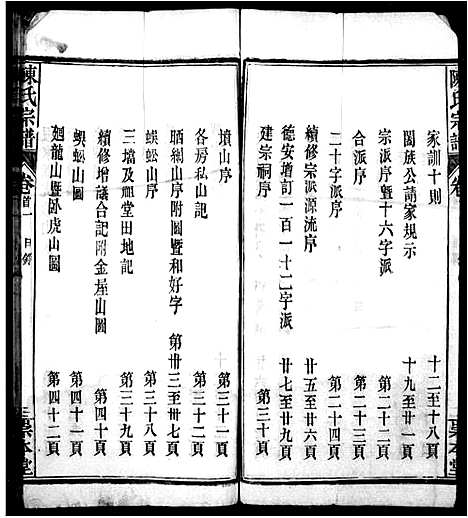 家訓十則 十二至十八頁
閤族公請家規示 十九至廿一頁
宗派序暨十六字派 第二十二頁
合派序 第二十三頁
二十字派序 第二十四頁
續修宗派源流序 廿五至廿六頁
德安增訂一百一十二字派 廿七至廿九頁
建宗祠序 第三十頁
墳山序 第三十一頁
各房私山記 第三十二頁
山序附圖暨和好字 第卅三至卅七頁
蜈蚣山序 第三十八頁
三壋及祖堂田地記 第三十九頁
續修增議合記附金屋山圖 第四十頁
蜈蚣山圖 第四十一頁
廻龍山暨臥虎山圖 第四十二頁
陳氏宗譜 卷首一 目錄 三 聚本堂